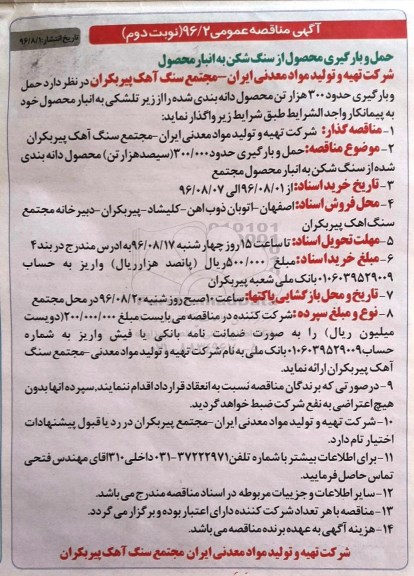 آگهی مناقصه عمومی ۹۶/۲ (نوبت دوم)
تاریخ انتشار: ۹۶/۸/۱
حمل و بارگیری محصول از سنگ شکن به انبار محصول
شرکت تهیه و تولید مواد معدنی ایران-مجتمع سنگ آهک پیربکران در نظر دارد حمل
و بارگیری حدود ۳۰۰ هزار تن محصول دانه بندی شده را از زیر تلشکی به انبار محصول خود
به پیمانکار واجد الشرایط طبق شرایط زیر واگذار نماید:
۱-مناقصه گذار: شرکت تهیه و تولید مواد معدنی ایران-مجتمع سنگ آهک پیربکران
۲-موضوع مناقصه: حمل و بارگیری حدود ۳۰۰/۰۰۰ (سیصد هزار تن) محصول دانه بندی
شده از سنگ شکن به انبار محصول مجتمع
۳-تاریخ خرید اسناد: از ۹۶/۰۸/۰۱ الی ۹۶/۰۸/۰۷
۴-محل فروش اسناد: اصفهان-اتوبان ذوب اهن-کلیشاد-پیربکران-دبیرخانه مجتمع
سنگ اهک پیربکران
۵-مهلت تحویل اسناد: تا ساعت ۱۵ روز چهارشنبه ۹۶/۰۸/۱۷ به ادرس مندرج در بند ۴
۶-مبلغ خرید اسناد: مبلغ ۵۰۰/۰۰۰ ریال (پانصد هزار ریال) واریز به حساب
۰۱۰۶۰۳۹۵۲۹۰۰۹ بانک ملی شعبه پیربکران
۷-تاریخ و محل بازگشایی پاکتها: ساعت ۱۰ صبح روز شنبه ۹۶/۰۸/۲۰ در محل مجتمع
۸-نوع و مبلغ سپرده: شرکت کننده در مناقصه می بایست مبلغ ۲۰۰/۰۰۰/۰۰۰ (دویست
میلیون ریال) را به صورت ضمانت نامه بانکی یا فیش واریز به شماره
حساب ۰۱۰۶۰۳۹۵۲۹۰۰۹ بانک ملی به نام شرکت تهیه و تولید مواد معدنی-مجتمع سنگ
آهک پیربکران ارائه نماید.
۹-درصورتی که برندگان مناقصه نسبت به انعقاد قرارداد اقدام ننمایند، سپرده انها بدون
هیچ اعتراضی به نفع شرکت ضبط خواهد گردید.
۱۰-شرکت تهیه و تولید مواد معدنی ایران-مجتمع پیربکران در رد یا قبول پیشنهادات
اختیار تام دارد.
۱۱-برای اطلاعات بیشتر با شماره تلفن ۳۷۲۲۲۹۷۱-۰۳۱ داخلی ۳۱۰ اقای مهندس فتحی
تماس حاصل فرمایید.
۱۲-سایر اطلاعات و جزییات مربوطه در اسناد مناقصه مندرج می باشد.
۱۳-مناقصه با هر تعداد شرکت کننده دارای اعتبار بوده و برگزار می گردد.
۱۴-هزینه آگهی به عهده برنده مناقصه می باشد.
شرکت تهیه و تولید مواد معدنی ایران مجتمع سنگ آهک پیربکران